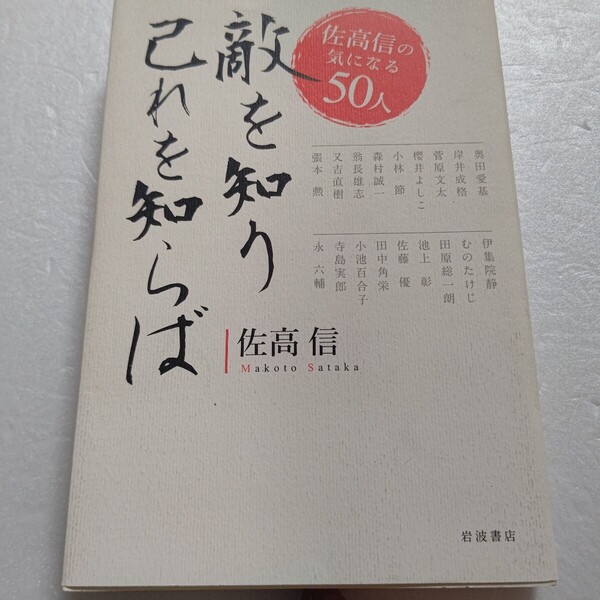 敵を知り
己れを知らば
佐高信の
気になる
50人
奥田愛基
岸井成格
菅原文太
櫻井よしこ
小林 節
森村誠一
翁長雄志
又吉直樹
張本 勲
伊集院静
むのたけじ
田原総一朗
池上 彰
佐藤 優
田中角栄
小池百合子
寺島実郎
永 六輔
佐高 信
Makoto Sataka
岩波書店